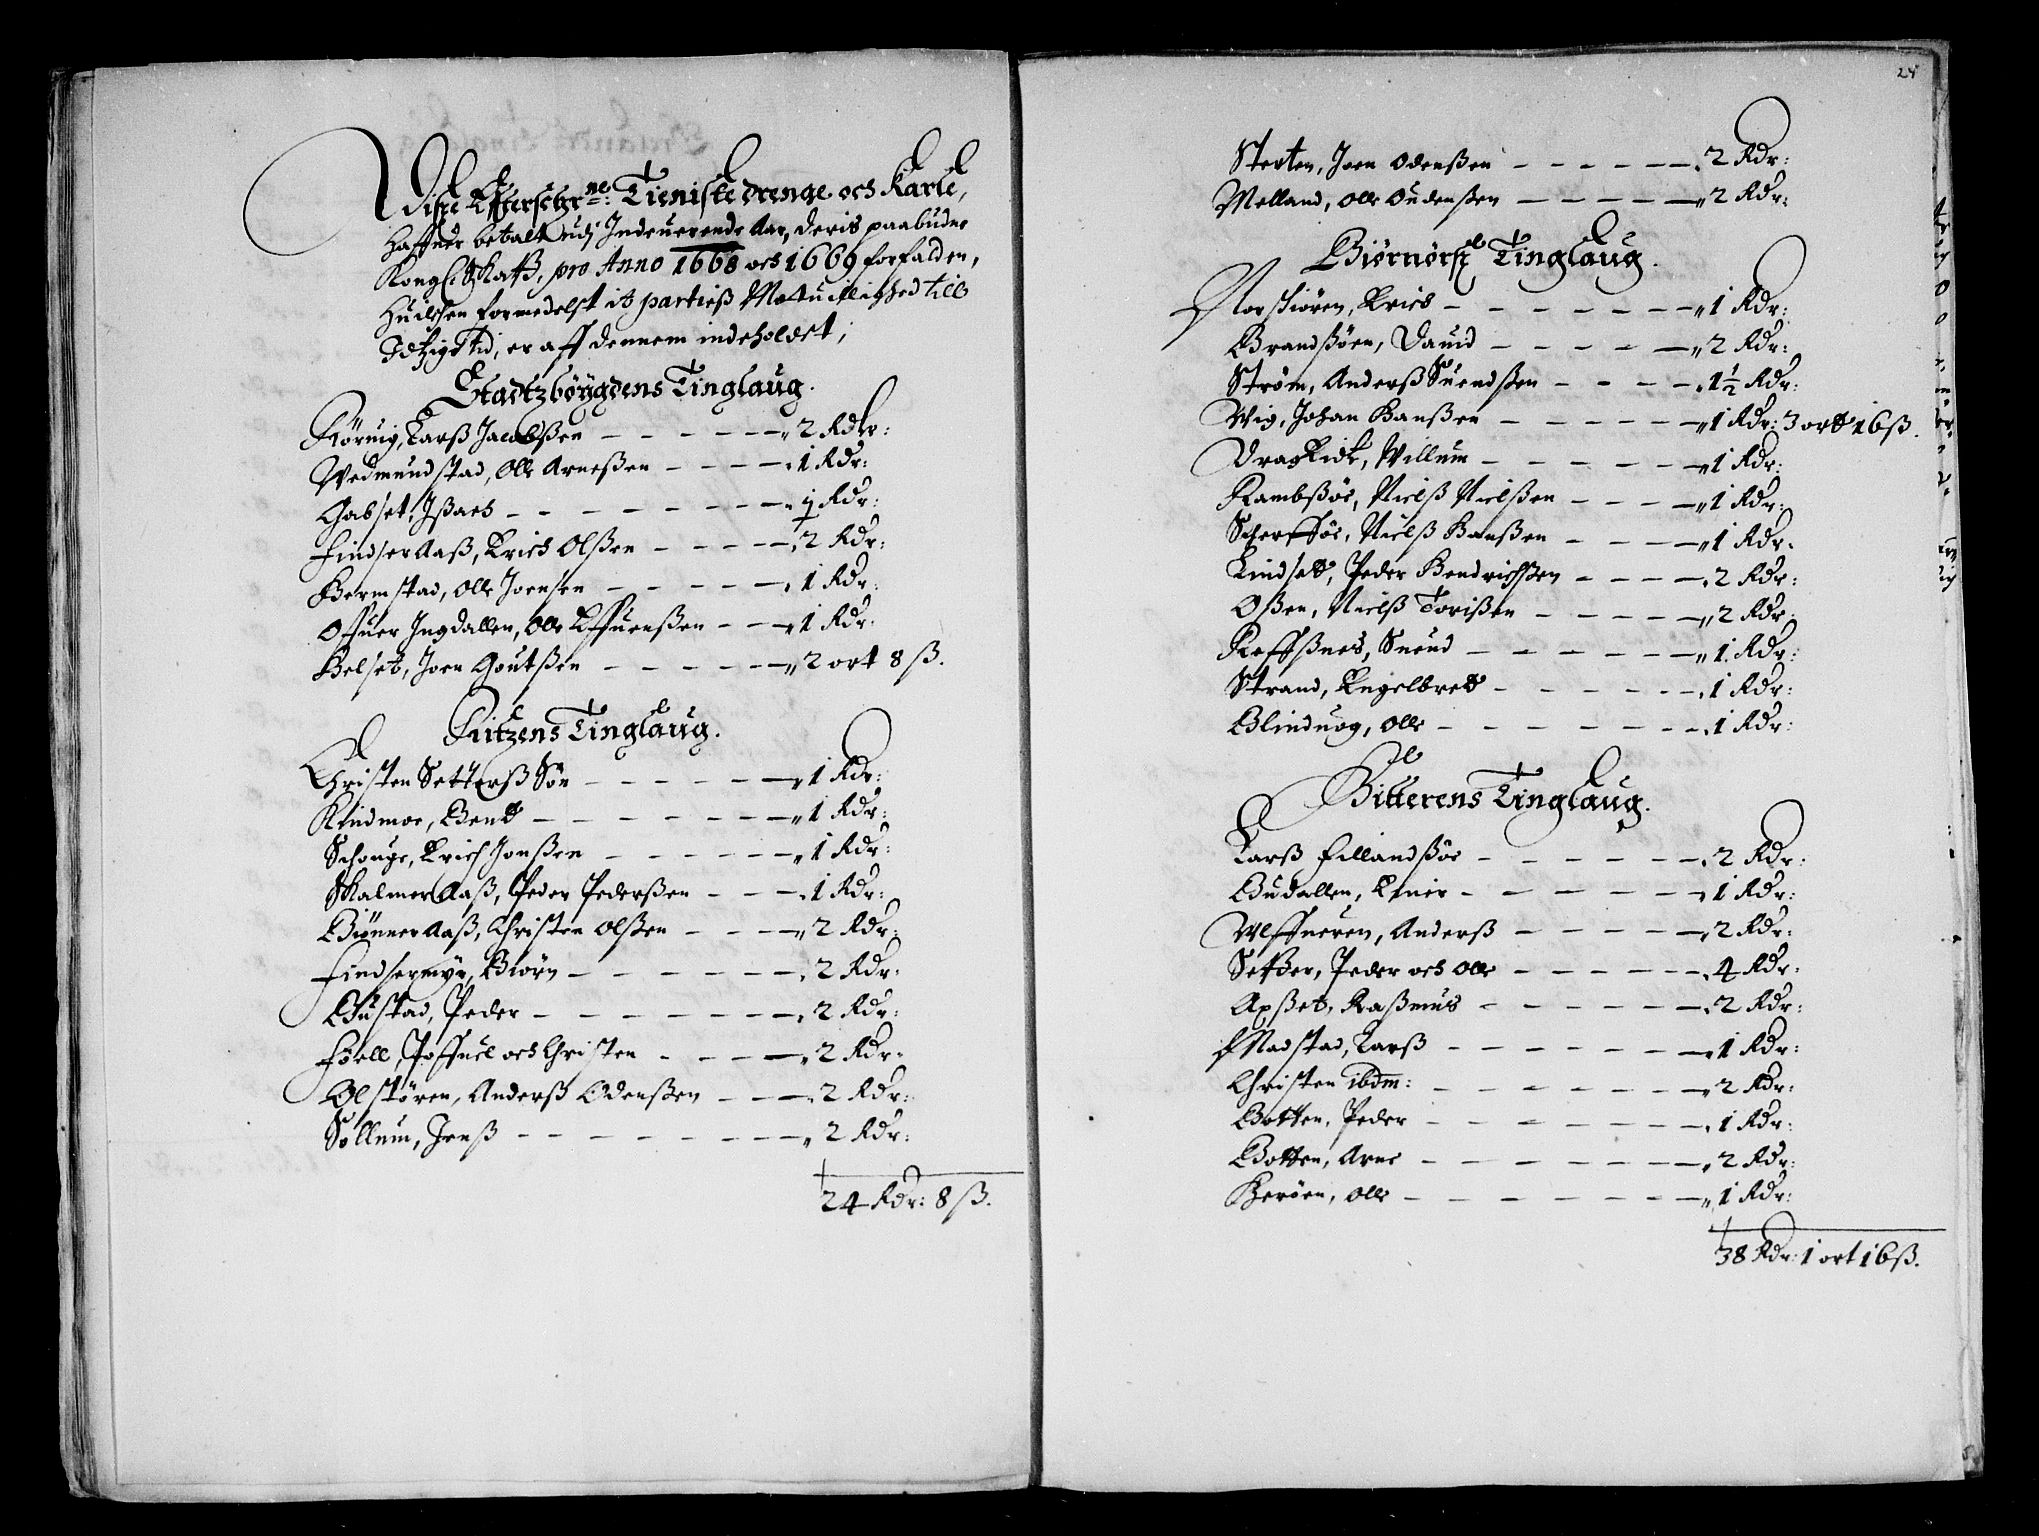 Disse Effterschr:ne Tieniste drenge och Karle,
Haffuer betalt udj Indeuerende Aar, deris paabudne
Kongl: Skatt, pro Anno 1668 och 1669 forfalden,
Huilchen formedelst it partiess Modtuillighed till
Idtzige Tid, er aff dennem indeholdet;
Stadtzbøygdens Tinglaug.
Rørvig, Larss Jacobssen - - - - - 2 Rdr:
Wedmundstad, Olle Arnessen - - - - 1 Rdr:
Gabset, Issach - - - - - - - - 1 Rdr:
Findser Aass, Erich Olssen - - - - - 2 Rdr:
Hermstad, Olle Joensen - - - - - 1 Rdr:
Ofuer Ingdallen, Olle Effuenssen - - - 1 Rdr:
Helset, Joen Goutssen - - - - - 2 ort 8 ss.
Ritzens Tinglaug.
Christen Setterss Søn - - - - - - 1 Rdr:
Kindmoe, Bent - - - - - - - 1 Rdr:
Schouge, Erich Jonssen - - - - - - 1 Rdr:
Skalmer Aass, Peder Pederssen - - - - 1 Rdr:
Biønner Aass, Christen Olssen - - - - 2 Rdr:
Findsermyr, Biørn - - - - - - 2 Rdr:
Bustad, Peder - - - - - - - - 2 Rdr:
Føell, Poffuel och Christen - - - - 2 Rdr:
Olstøren, Anderss Odenssen - - - 2 Rdr:
Sollum, Jenss - - - - - - - - 2 Rdr:
24 Rdr: 8 ss.
24
Sterten, Joen Odenssen - - - - - 2 Rdr:
Melland, Olle Oudenssen - - - - - 2 Rdr:
Biørnørss Tinglaug.
Norschiøren, Erich - - - - - - - 1 Rdr:
Brandssøen, Dauid - - - - - 2 Rdr:
Strøm, Anderss Suendssen - - - - 1½ Rdr:
Wig, Johan Hanssen - - - - - - 1 Rdr: 3 ort 16 ss.
Dragseidt, Willum - - - - - - 1 Rdr:
Rambssøe, Nielss Nielssen - - - - 1 Rdr:
Scherfføe, Nielss Hanssen - - - - 1 Rdr:
Lindset, Peder Hendrichssen - - - - 2 Rdr:
Ossen, Nielss Torissen - - - - - 2 Rdr:
Reffssnes, Suend - - - - - - - 1 Rdr:
Strand, Engelbret - - - - - - 1 Rdr:
Blinduog, Olle - - - - - - - - 1 Rdr:
Hitterens Tinglaug.
Larss Fillandssøe - - - - - - 2 Rdr:
Budallen, Einer - - - - - - - 1 Rdr:
Ulffueren, Anderss - - - - - 2 Rdr:
Setzer, Peder och Olle - - - - - - 4 Rdr:
Apsset, Rassmus - - - - - - 2 Rdr:
Madstad, Larss - - - - - - - 1 Rdr:
Christen ibdm: - - - - - - - 2 Rdr:
Botten, Peder - - - - - - - - 1 Rdr:
Botten, Arne - - - - - - - 2 Rdr:
Herøen, Olle - - - - - - - - 1 Rdr:
38 Rdr: 1 ort 16 ss.